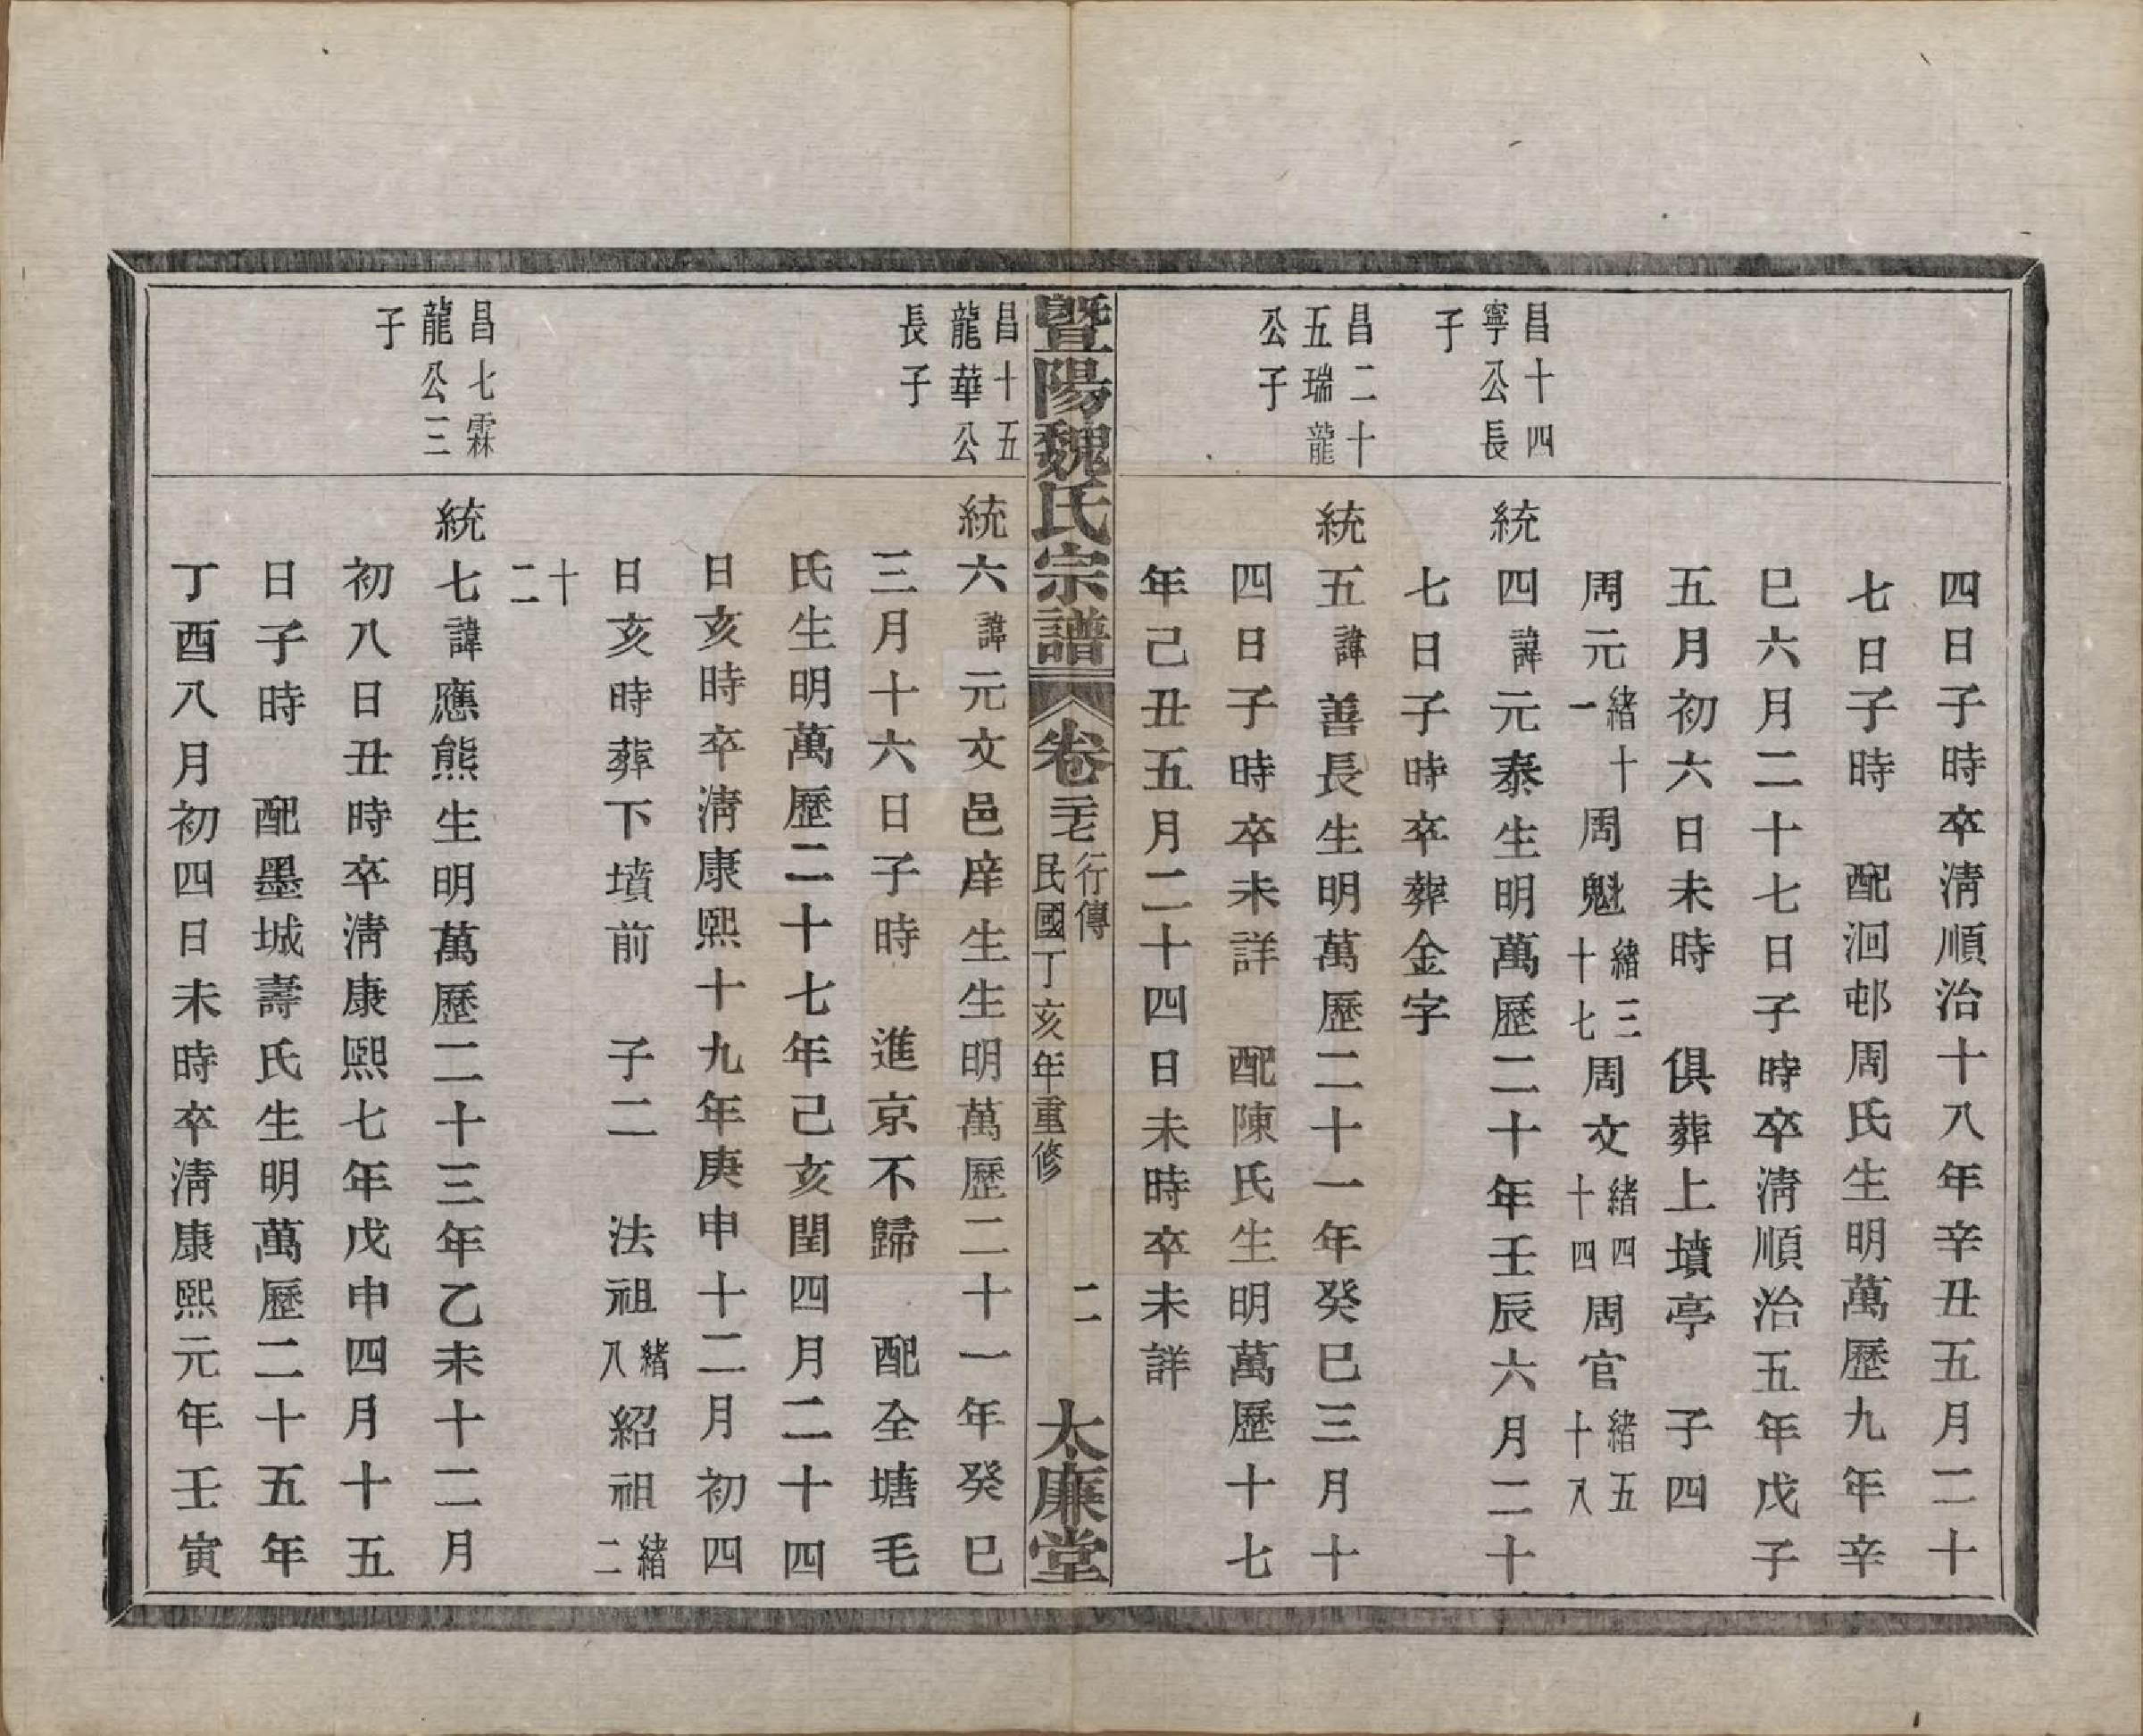 四日子時卒清順治十八年辛丑五月二十
七日子時 配洄邨周氏生明萬歷九年辛
巳六月二十七日子時卒清順治五年戊子
五月初六日未時 俱葬上墳亭 子四
周元緒十一周魁緒三十七周文緒四十四周官緒五十八
昌十四寧公長子
統四諱元泰生明萬歷二十年壬辰六月二十
七日子時卒葬金字
昌二十五瑞龍公子
統五諱善長生明萬歷二十一年癸巳三月十
四日子時卒未詳 配陳氏生明萬歷十七
年己丑五月二十四日未時卒未詳
暨陽魏氏宗譜 卷二十七 行傳 民國丁亥年重修 二 太廉堂
昌十五龍華公長子
統六諱元文邑庠生生明萬歷二十一年癸巳
三月十六日子時 進京不歸 配全塘毛
氏生明萬歷二十七年己亥閏四月二十四
日亥時卒清康熙十九年庚申十二月初四
日亥時葬下墳前 子二 法祖緒八紹祖緒二
十二
昌七霖龍公三子
統七諱應熊生明萬歷二十三年乙未十二月
初八日丑時卒清康熙七年戊申四月十五
日子時 配墨城壽氏生明萬歷二十五年
丁酉八月初四日未時卒清康熙元年壬寅